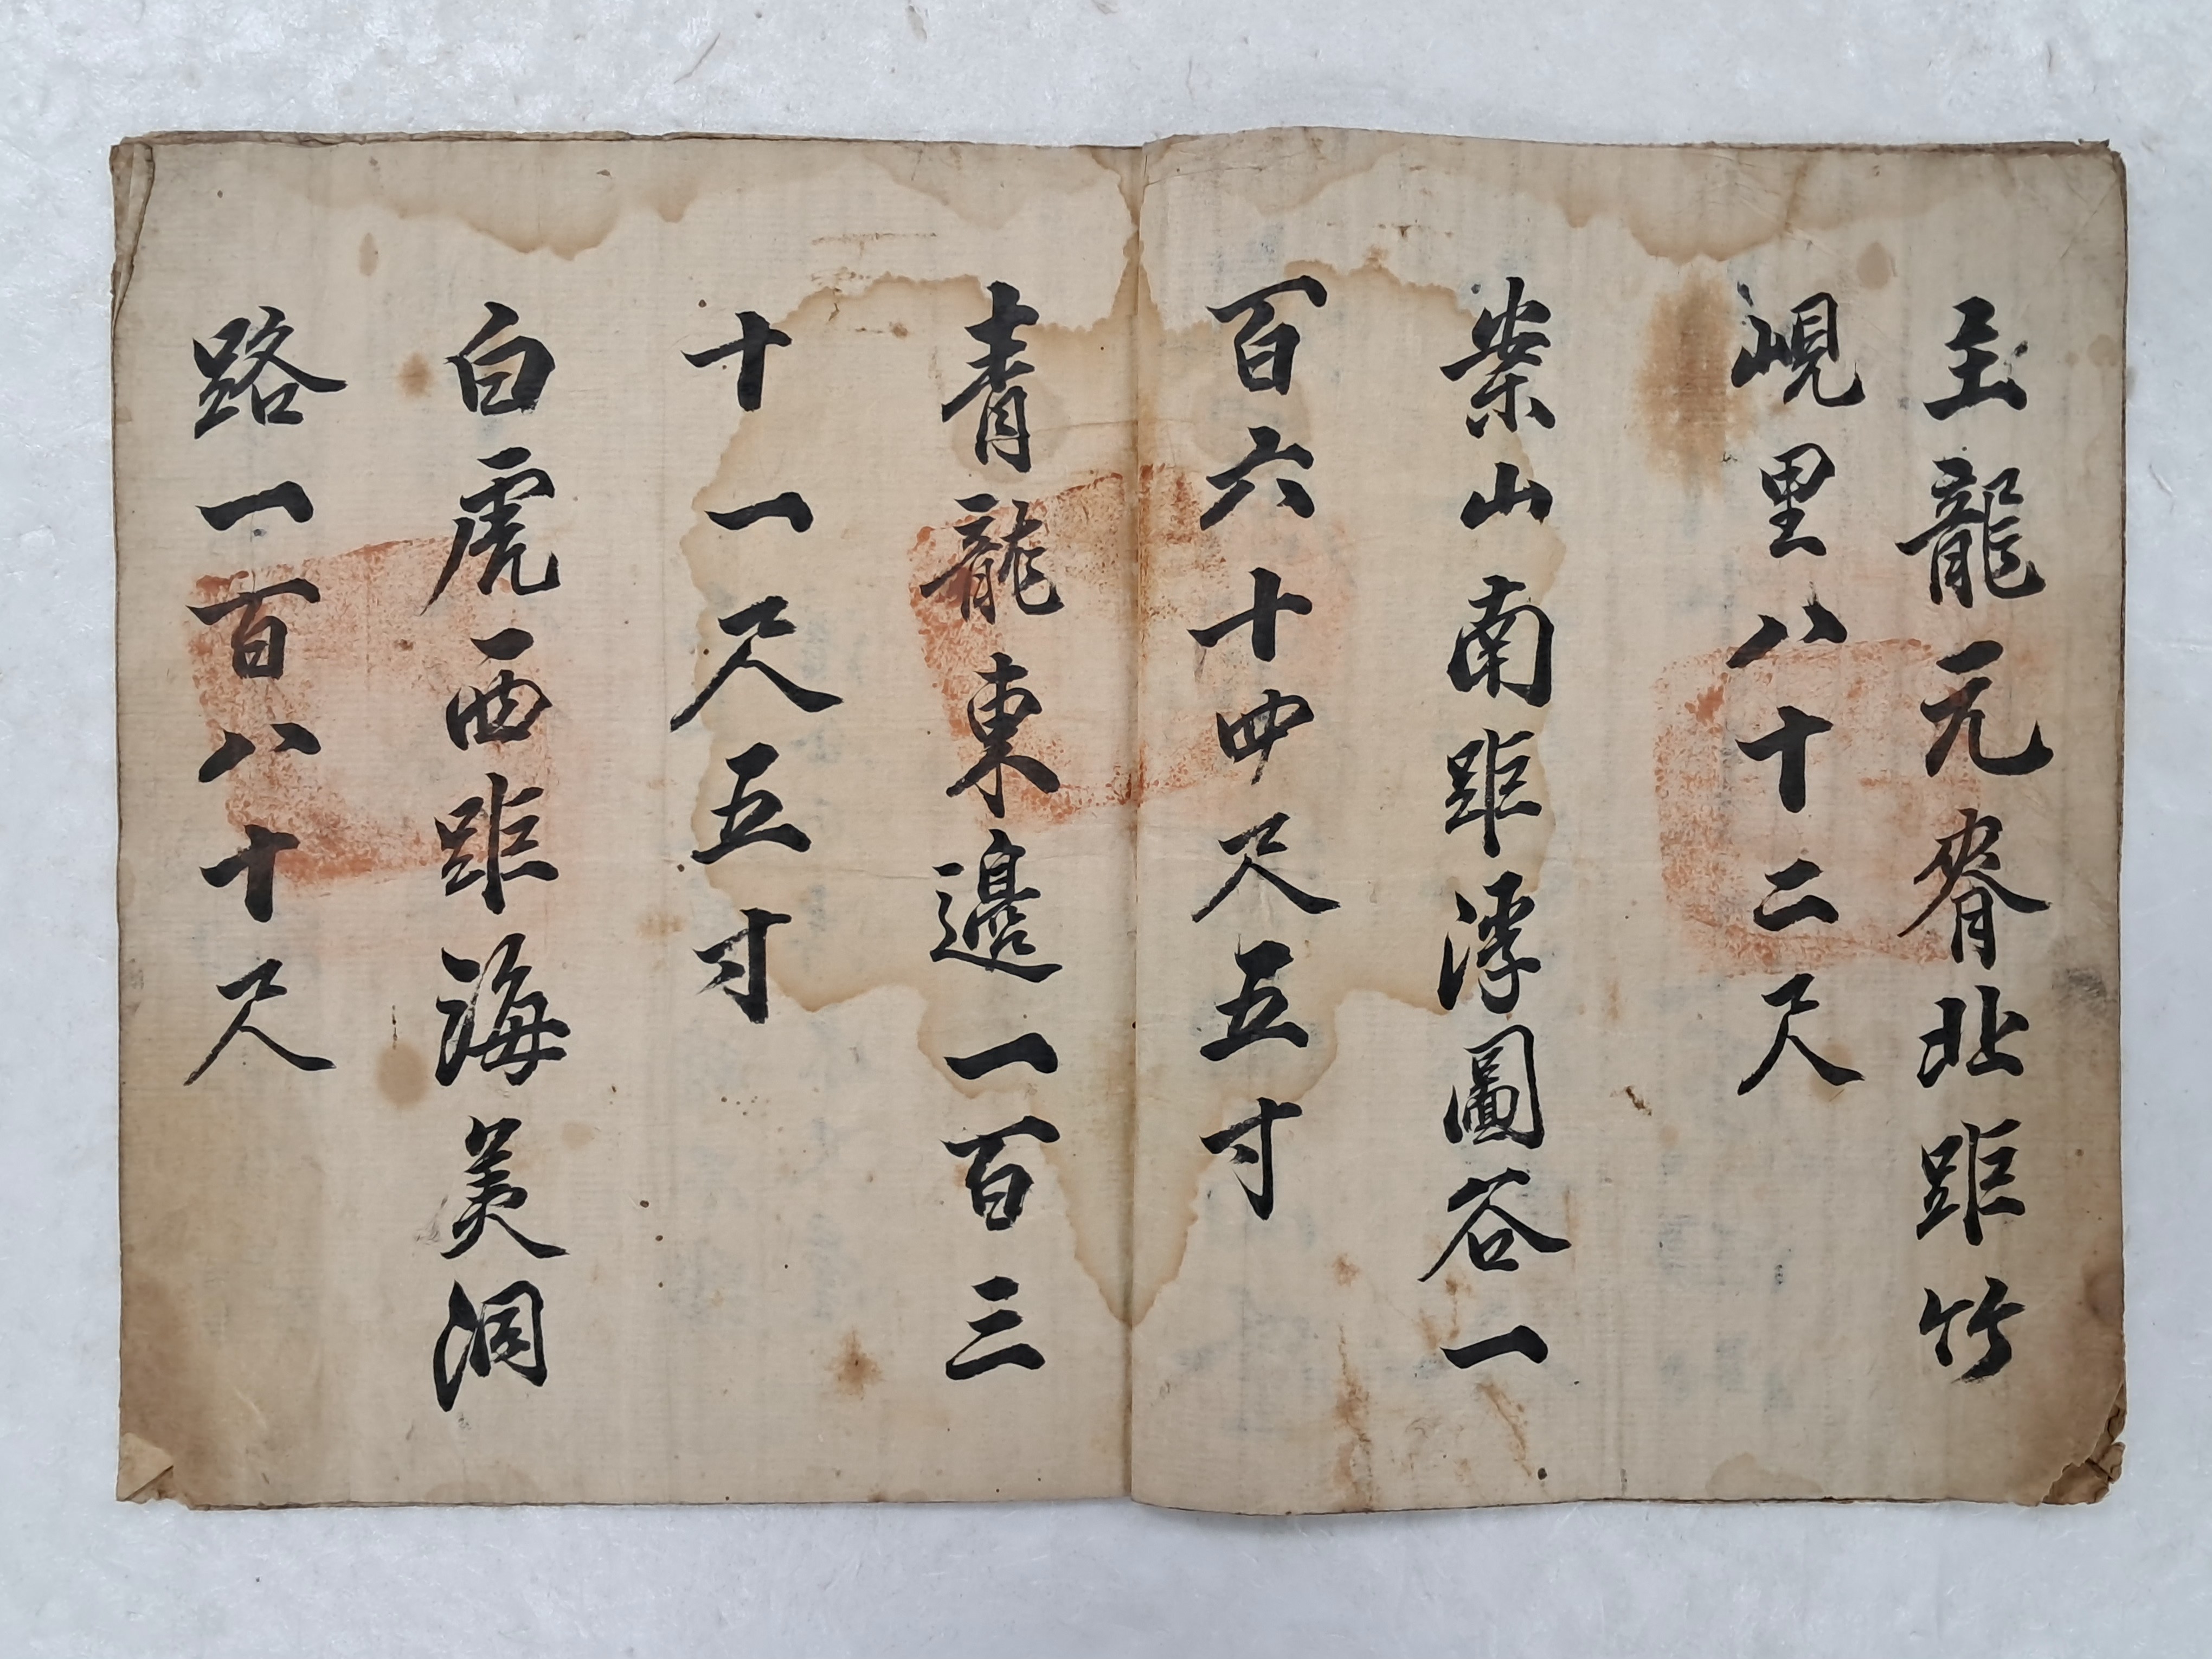 主龍元脊北距竹
峴里八十二尺
案山南距浮圖谷一
百六十四尺五寸
青龍東邊一百三
十一尺五寸
白虎西距海美洞
路一百八十尺